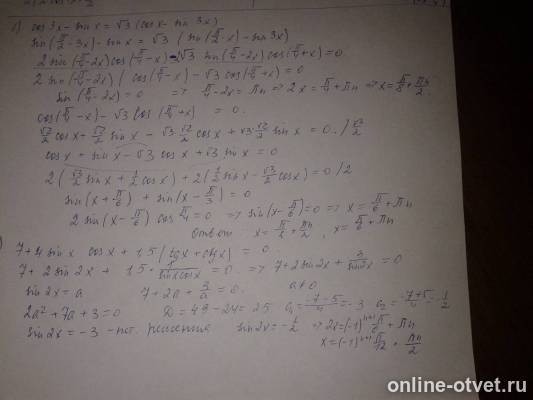 1) cos 3x - sin x = √3 (cos x - sin 3x)
sin(π/2 - 3x) - sin x = √3 (sin(π/2 - x) - sin 3x)
2 sin(π/4 - 2x) cos(π/4 - x) - 2√3 sin(π/4 - 2x) cos(π/4 + x) = 0
2 sin(π/4 - 2x) (cos(π/4 - x) - √3 cos(π/4 + x) = 0
sin(π/4 - 2x) = 0 => π/4 - 2x = πn => 2x = π/4 + πn => x = π/8 + πn/2
cos(π/4 - x) - √3 cos(π/4 + x) = 0.
√2/2 cos x - √2/2 sin x - √3·√2/2 cos x + √3·√2/2 sin x = 0. / √2/2
cos x + sin x - √3 cos x + √3 sin x = 0
2(√3/2 sin x + 1/2 cos x) + 2(1/2 sin x - √3/2 cos x) = 0 /2
sin(x + π/6) + sin(x - π/3) = 0
2 sin(x - π/6) cos π/4 = 0 => sin(x - π/6) = 0 => x = π/6 + πn
Ответ x = π/8 + πn/2, x = π/6 + πn
7 + 4 sin x cos x + 1,5 (tg x + ctg x) = 0.
7 + 2 sin 2x + 1,5 · 1/sin x cos x = 0 => 7 + 2 sin 2x + 3/sin 2x = 0
sin 2x = a 7 + 2a + 3/a = 0. a ≠ 0
2a² + 7a + 3 = 0 D = 49 - 24 = 25 a₁ = -7-5/4 = -3 a₂ = -7+5/4 = -1/2
sin 2x = -3 - нет решения sin 2x = -1/2 => 2x = (-1)ⁿ⁺¹ π/6 + πn
x = (-1)ⁿ⁺¹ π/12 + πn/2
online-otvet.ru